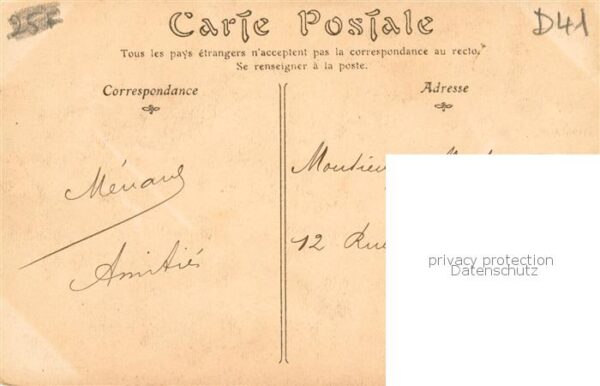 25F
D41
Carte Postale
Tous les pays étrangers n'acceptent pas la correspondance au recto.
Se renseigner à la poste.
Correspondance
Adresse
Amitiés
12 Rue
privacy protection
Datenschutz